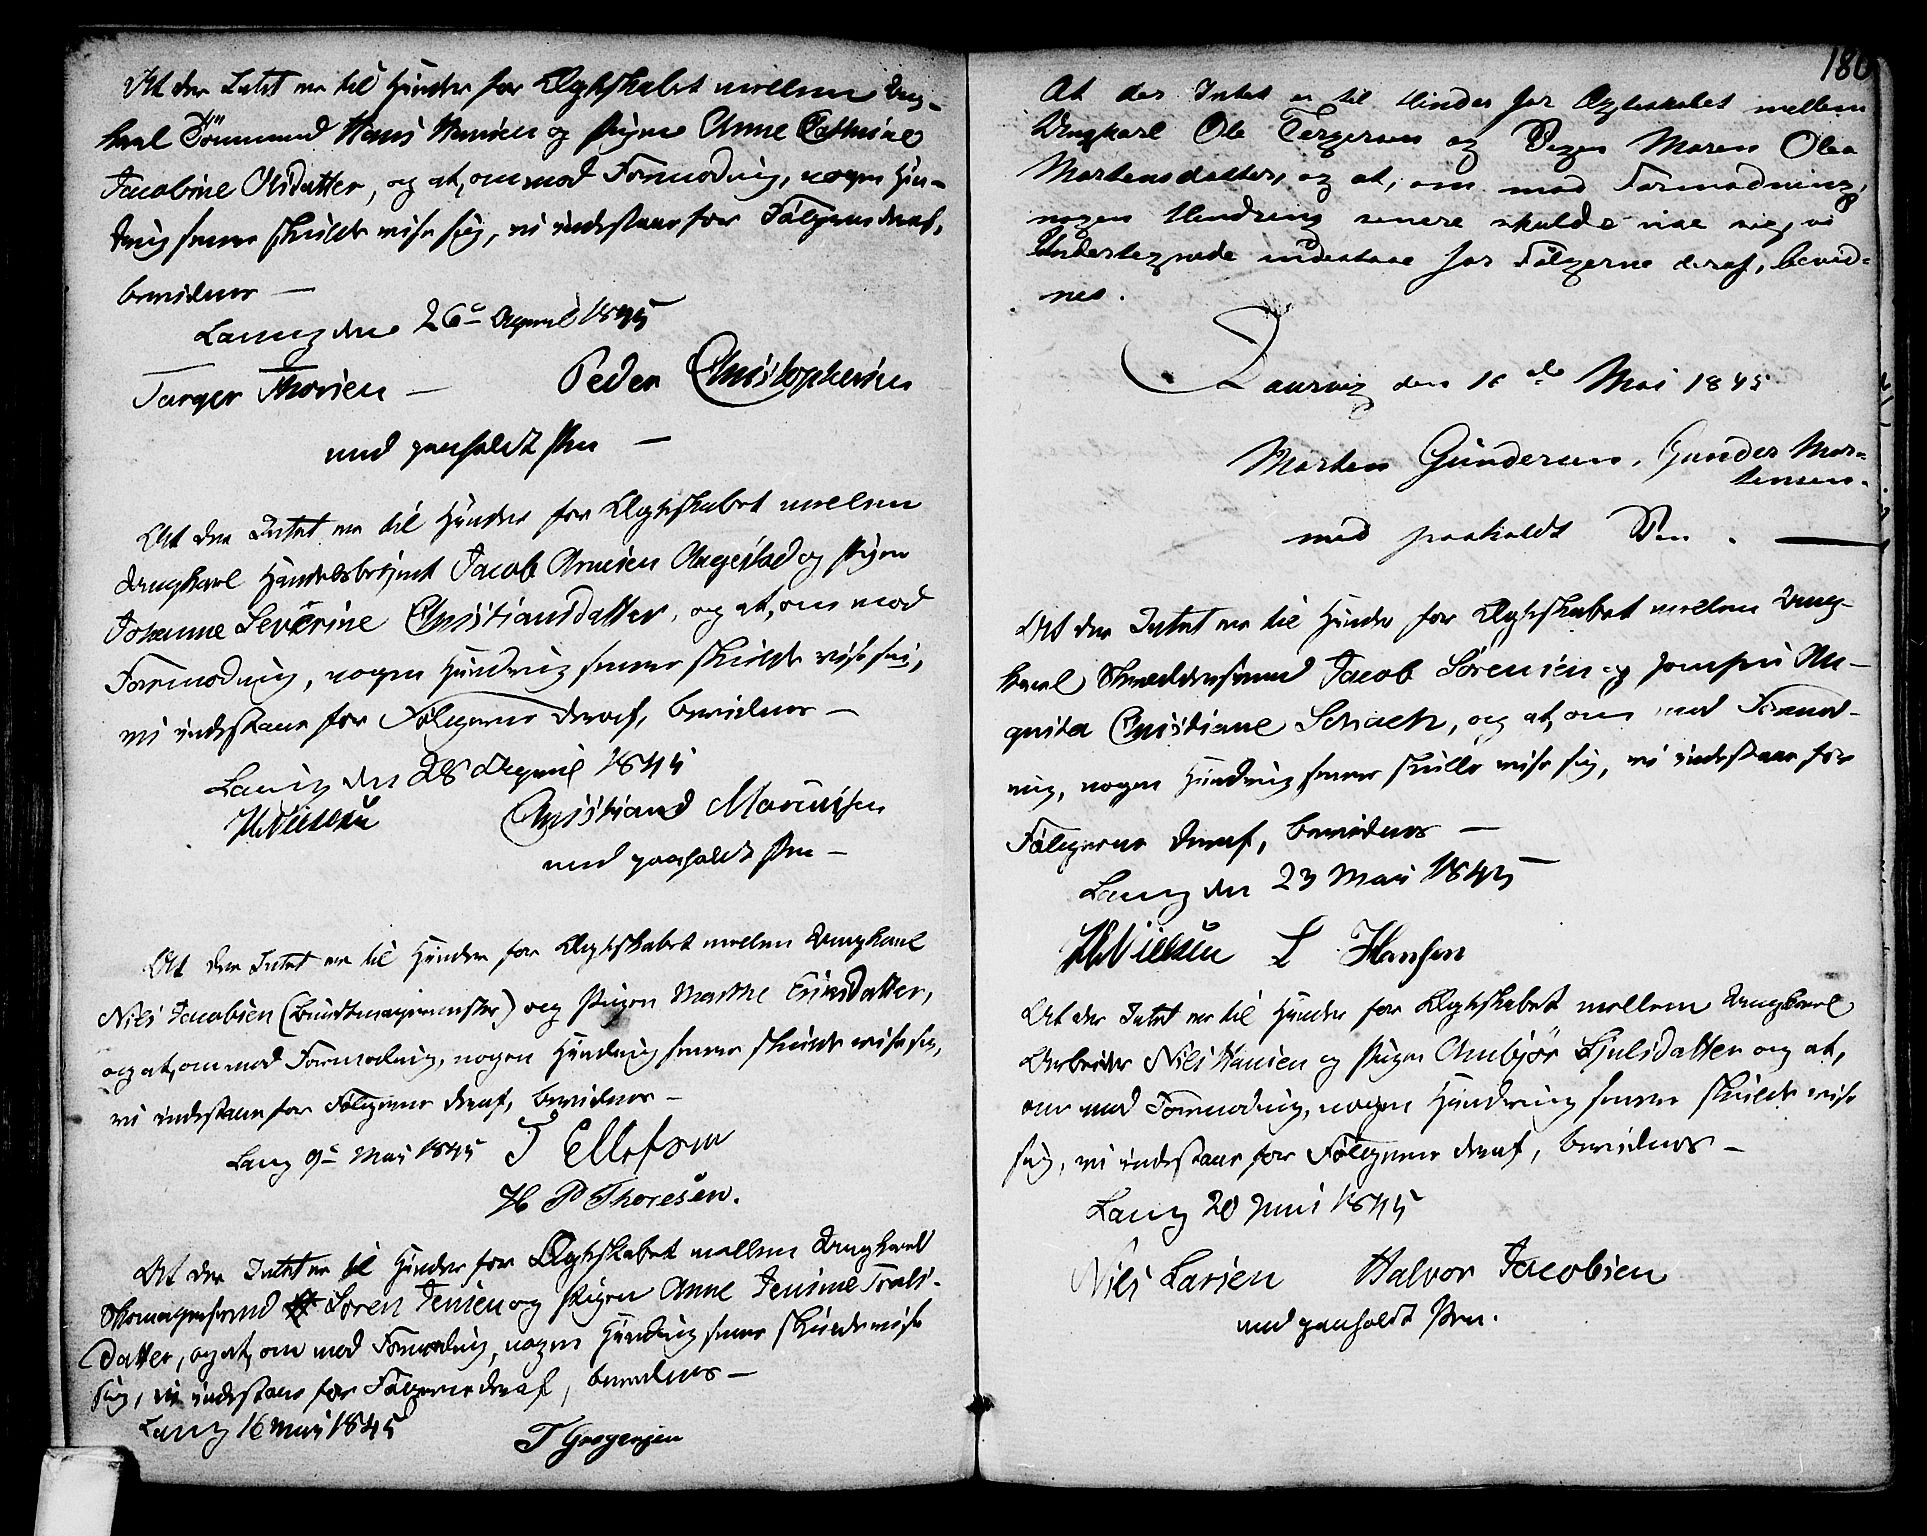 At der Intet er til Hinder for Ægteskabet mellem Ung-
karl Sömmand Hans Hansen og Pigen Anne Cathrine
Jacobine Olsdatter, og at, om mod Formodning, nogen Hin-
dring senere skulde vise sig, vi indestaae for Fölgerne deraf,
bevidnes —
Laurvig den 26de April 1845
Torger Thorsen — Peder Christophersen
med paaholdt Pen —
At der Intet er til Hinder for Ægteskabet mellem
Ungkarl Handelsbetjent Jacob Arnesen Aagestad og Pigen
Johanne Severine Christiansdatter, og at, om mod
Formodning, nogen Hindring senere skulde vise sig,
vi indestaae for Fölgerne deraf, bevidnes —
Laurvig den 28 April 1845
HNielsen Christiand
med paaholdt Pen —
At der Intet er til Hinder for Ægteskabet mellem Ungkarl
Niels Jacobsen (Bundtmagermester) og Pigen Marthe Eriksdatter,
og at, om mod Formodning, nogen Hindring senere skulde vise sig,
vi indestaae for Fölgerne deraf, bevidnes —
Laurvig 9de Mai 1845 T Ellefsen
H P Thoresen.
At der Intet er til Hinder for Ægteskabet mellem Ungkarl
Skomagersvend Sören Jensen og Pigen Anne Jensine Troels-
datter, og at, om mod Formodning, nogen Hindring senere skulde vise
sig, vi indestaae for Fölgerne deraf, bevidnes —
Laurvig 16 Mai 1845
T
180
At der Intet er til Hinder for Ægteskabet mellem
Ungkarl Ole Tergersen og Pigen Maren Olea
Mortensdatter, og at, om mod Formodning,
nogen Hindring senere skulde vise sig, vi
Undertegnede indestaae for Fölgerne deraf, bevid-
nes.
Laurvig den 16de Mai 1845
Morten Gundersen, Gunder Mor-
tensen.
med paaholdt Pen. —
At der Intet er til Hinder for Ægteskabet mellem Ung-
karl Smeddesvend Jacob Sörensen og Jomfru Au-
gusta Christiane Schach, og at, om mod Formod-
ning, nogen Hindring senere skulde vise sig, vi indestaae for
Fölgerne deraf, bevidnes —
Laurvig den 23 Mai 1845
HNielsen L. Hansen
At der Intet er til Hinder for Ægteskabet mellem Ungkarl
Arbeider Niels Hansen og Pigen Anbjör Kjelsdatter og at,
om mod Formodning, nogen Hindring senere skulde vise
sig, vi indestaae for Fölgerne deraf, bevidnes —
Laurvig 20 Juni 1845
Niels Larsen Halvor Jacobsen
med paaholdt Pen.